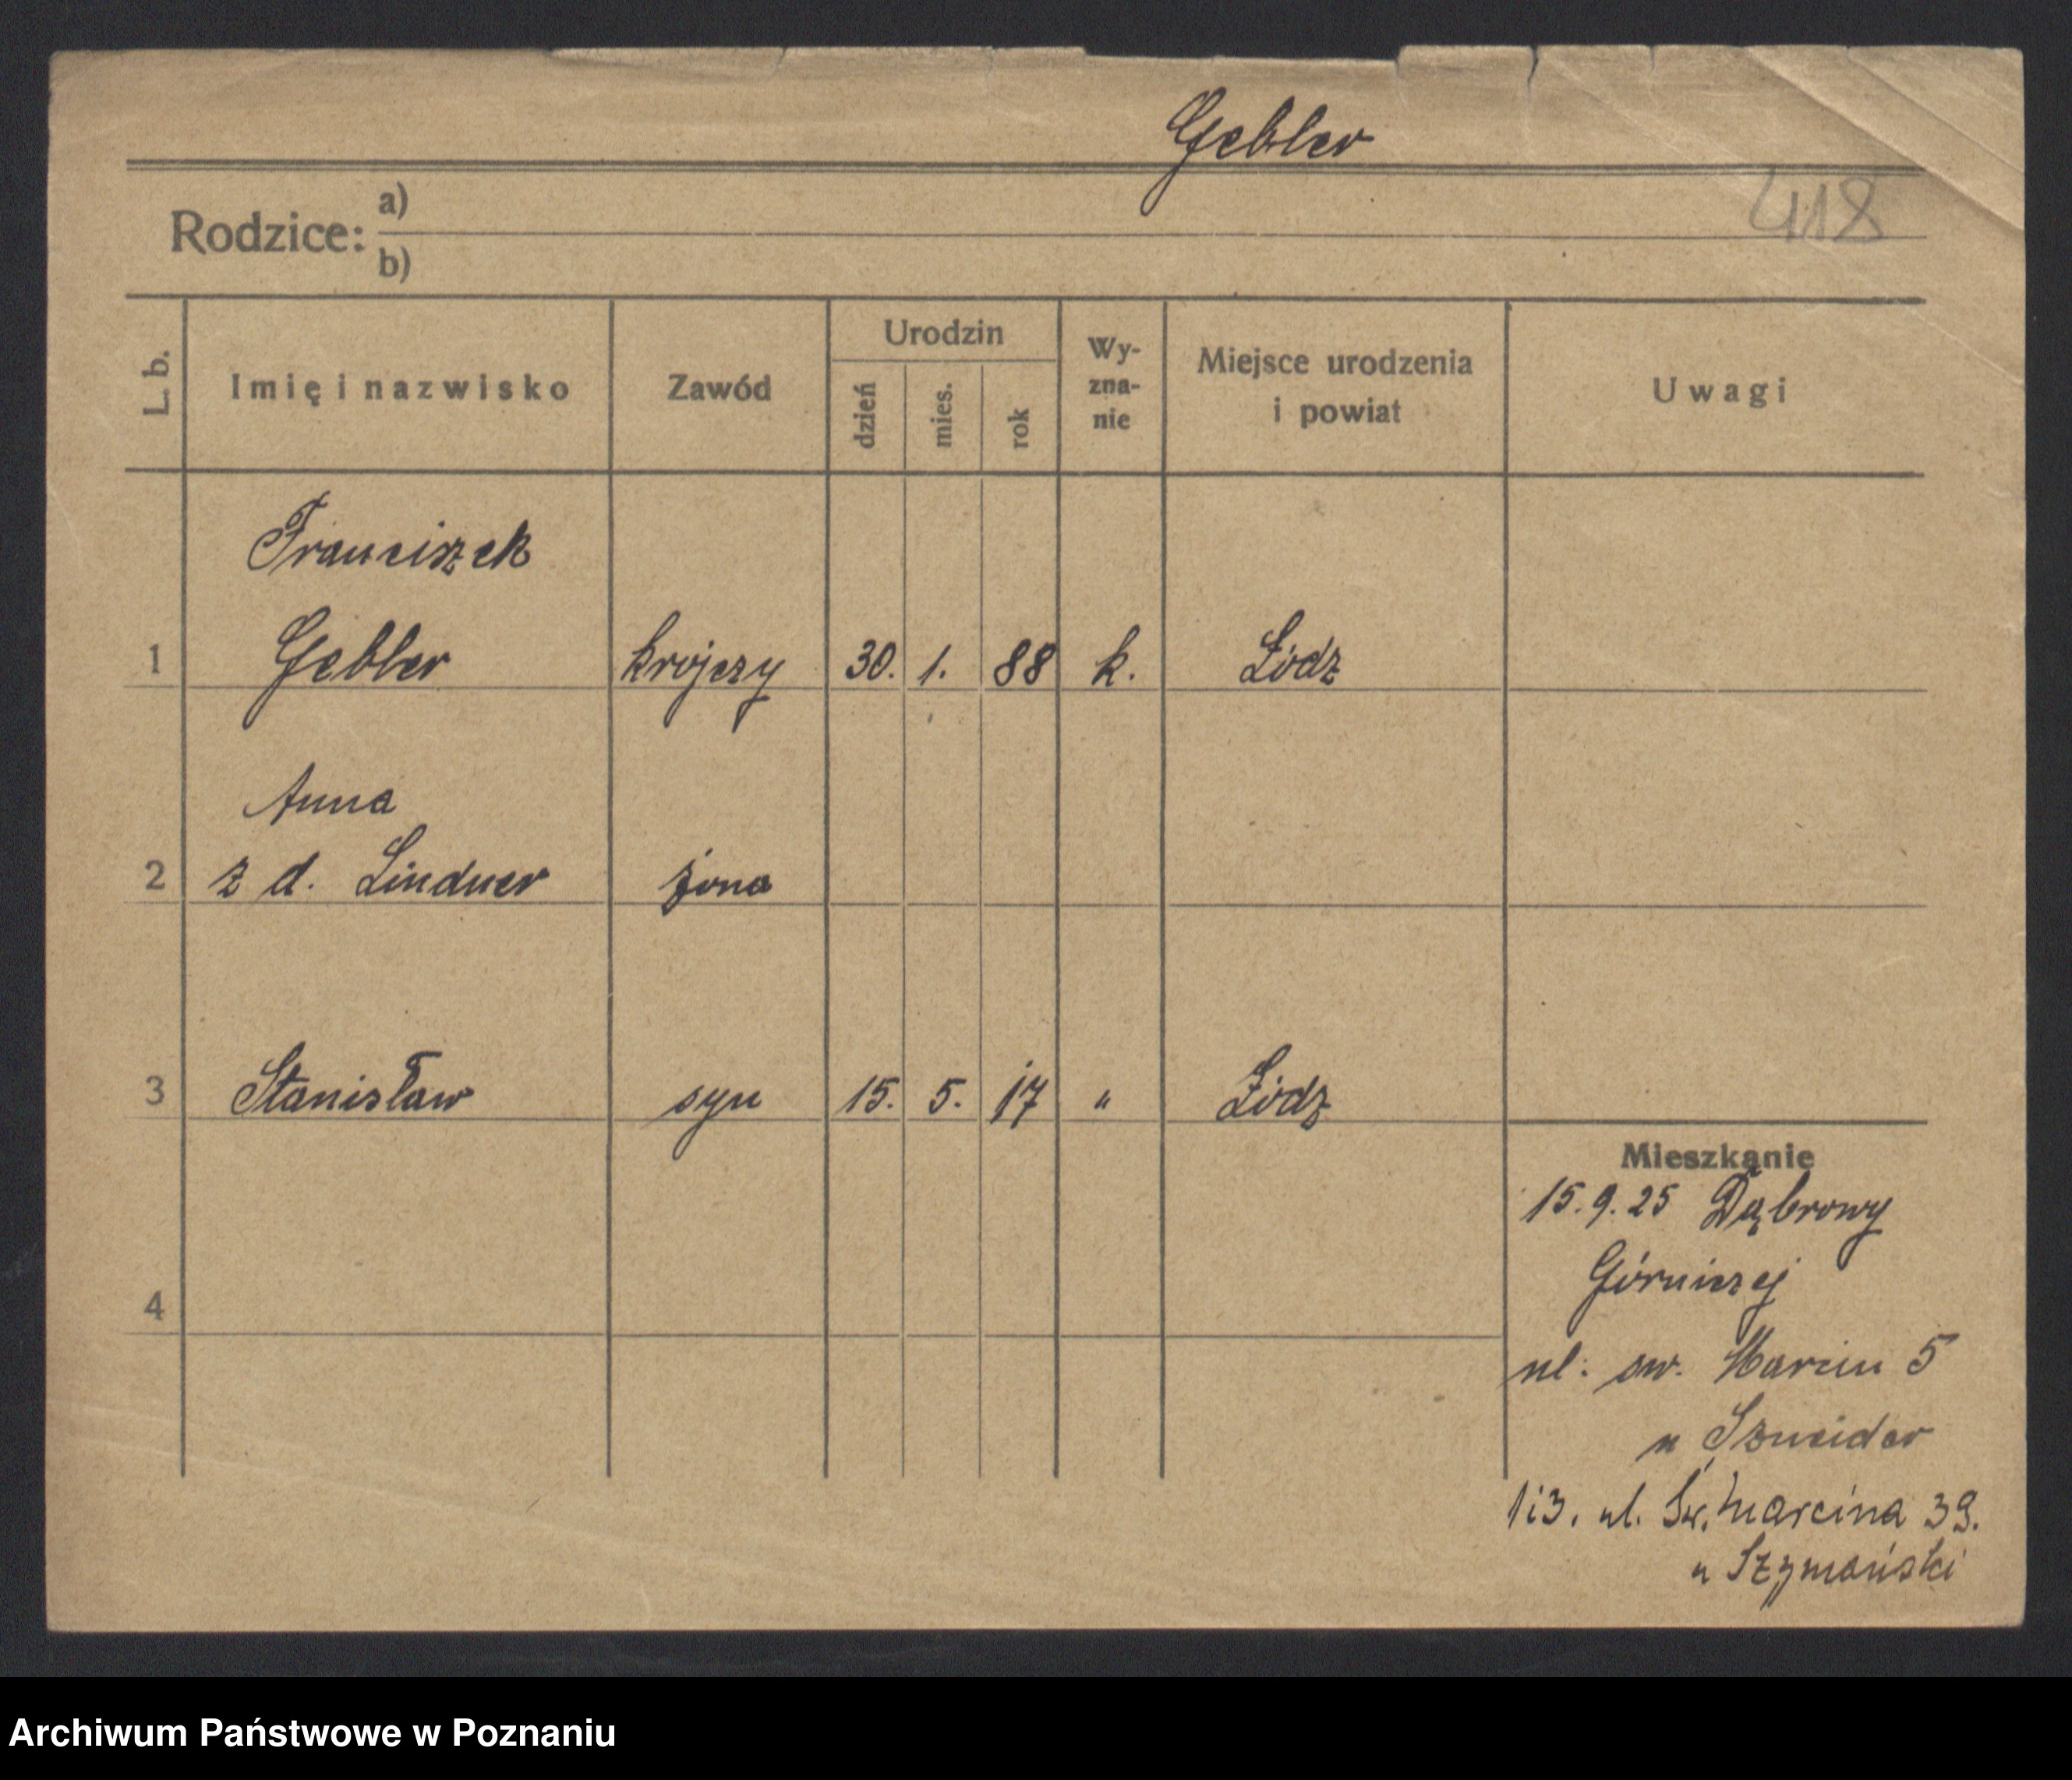 Gebler
418
Rodzice: a)
b)
L. b.
Imię i nazwisko
Zawód
Urodzin
dzień
mies.
rok
Wy-
zna-
nie
Miejsce urodzenia
i powiat
Uwagi
Franciszek
1 Gebler krojczy 30. 1. 88 k. Łódz
Anna
2 z d. Lindner żona
3 Stanisław syn 15. 5. 17 " Łódz
Mieszkanie
15.9.25 Dąbrowy
Górniczej
4
ul. św. Marcin 5
u Szneider
1i3. ul. Św. Marcina 39.
u Szymański
Archiwum Państwowe w Poznaniu